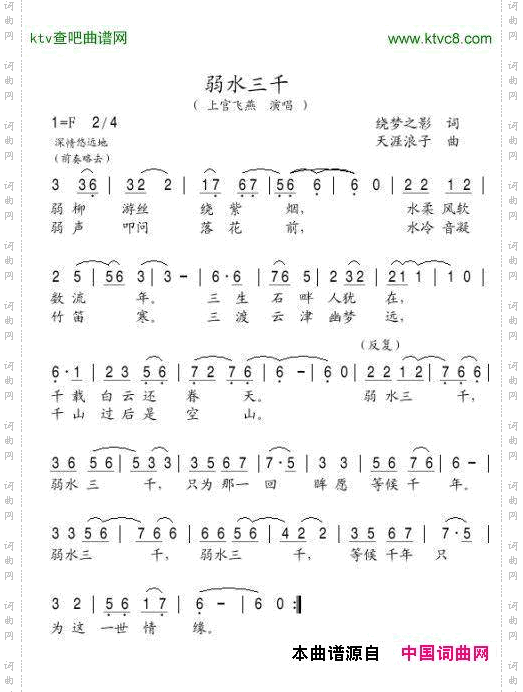 ktv查吧曲谱网 www.ktvc8.com
弱水三千
( 上官飞燕 演唱 )
1=F 2/4 绕梦之影 词
深情悠远地 天涯浪子 曲
(前奏略去)
3 36 | 32 2 | 17 67 | 56 6 | 6 0 | 22 12 |
弱柳 游丝 绕紫 烟, 水柔风软
弱声 叩问 落花 前, 水冷音凝
2 5 | 56 3 | 3 - | 6·6 | 76 5 | 2 32 | 21 1 | 10 |
数流 年。 三生 石畔 人犹 在,
竹笛 寒。 三渡 云津 幽梦 远,
(反复)
6·1 | 22 23 56 | 76 7 | 6 - | 60 | 22 12 | 767 |
千载 白云还 眷 天。 弱水三 千,
千山 过后是 空 山。
36 56 | 5 33 | 35 67 | 7·5 | 33 23 | 56 76 | 6 - |
弱水 三 千, 只为那一 回 眸愿 等候千 年。
33 56 | 7 66 | 66 56 | 4 22 | 33 56 | 7·5 |
弱水三 千, 弱水三 千, 等候千年 只
3 2 | 56 17 | 6 - | 6 0 :|
为这 一世情 缘。
本曲谱源自 中国词曲网
词曲网